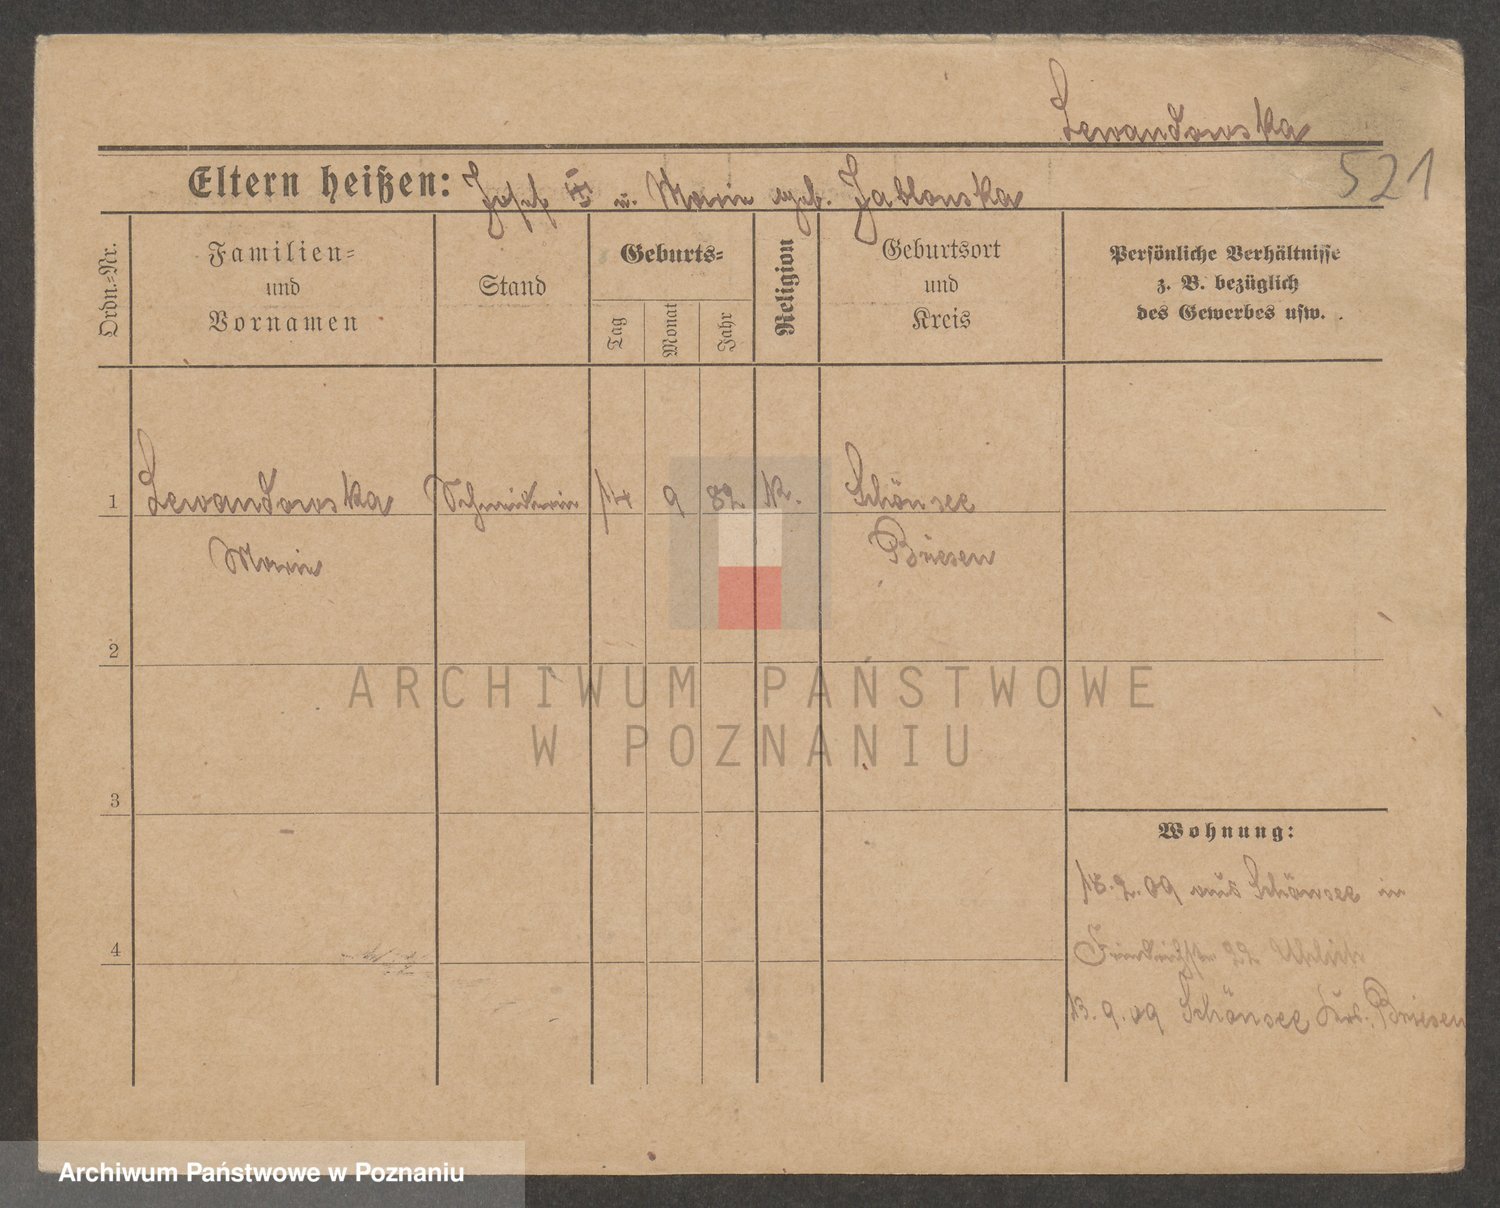 Lewandowska
521
Eltern heißen: Josef u. Marie geb. Jablonska
Ordn.-Nr.
Familien-
und
Vornamen
Stand
Geburts-
Tag
Monat
Jahr
Religion
Geburtsort
und
Kreis
Persönliche Verhältnisse
z. B. bezüglich
des Gewerbes usw.
1 Lewandowska Schneiderin 14 9 82 K. Schönsee
Marie Briesen
2
3
4
Wohnung:
18.2.09 aus Schönsee in
Friedrichstr 22
13.9.09 Schönsee Krs. Briesen
ARCHIWUM PAŃSTWOWE
W POZNANIU
Archiwum Państwowe w Poznaniu